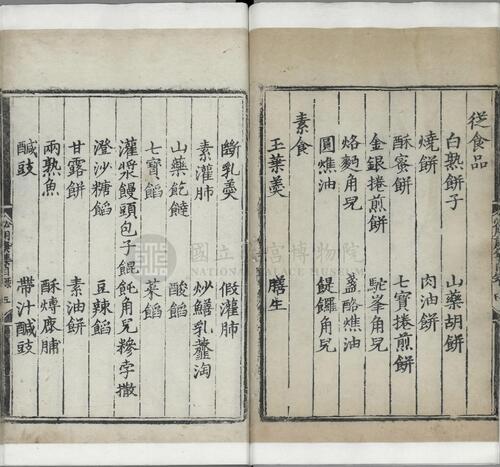 從食品
白熟餅子 山藥胡餅
燒餅 肉油餅
酥蜜餅 七寶捲煎餅
金銀捲煎餅 駝峯角兒
烙麪角兒 䭔酪燋油
圓燋油 鍉鑼角兒
素食
玉葉羹 膳生
斷乳羹 假灌肺
素灌肺 炒鱔乳虀淘
山藥飥饒 酸餡
七寶餡 菜餡
灌漿饅頭包子餛飩角兒糝孛撒
澄沙糖餡 豆辣餡
甘露餅 素油餅
兩熟魚 酥煿麋脯
鹹豉 帶汁鹹豉
國立故宮博物院